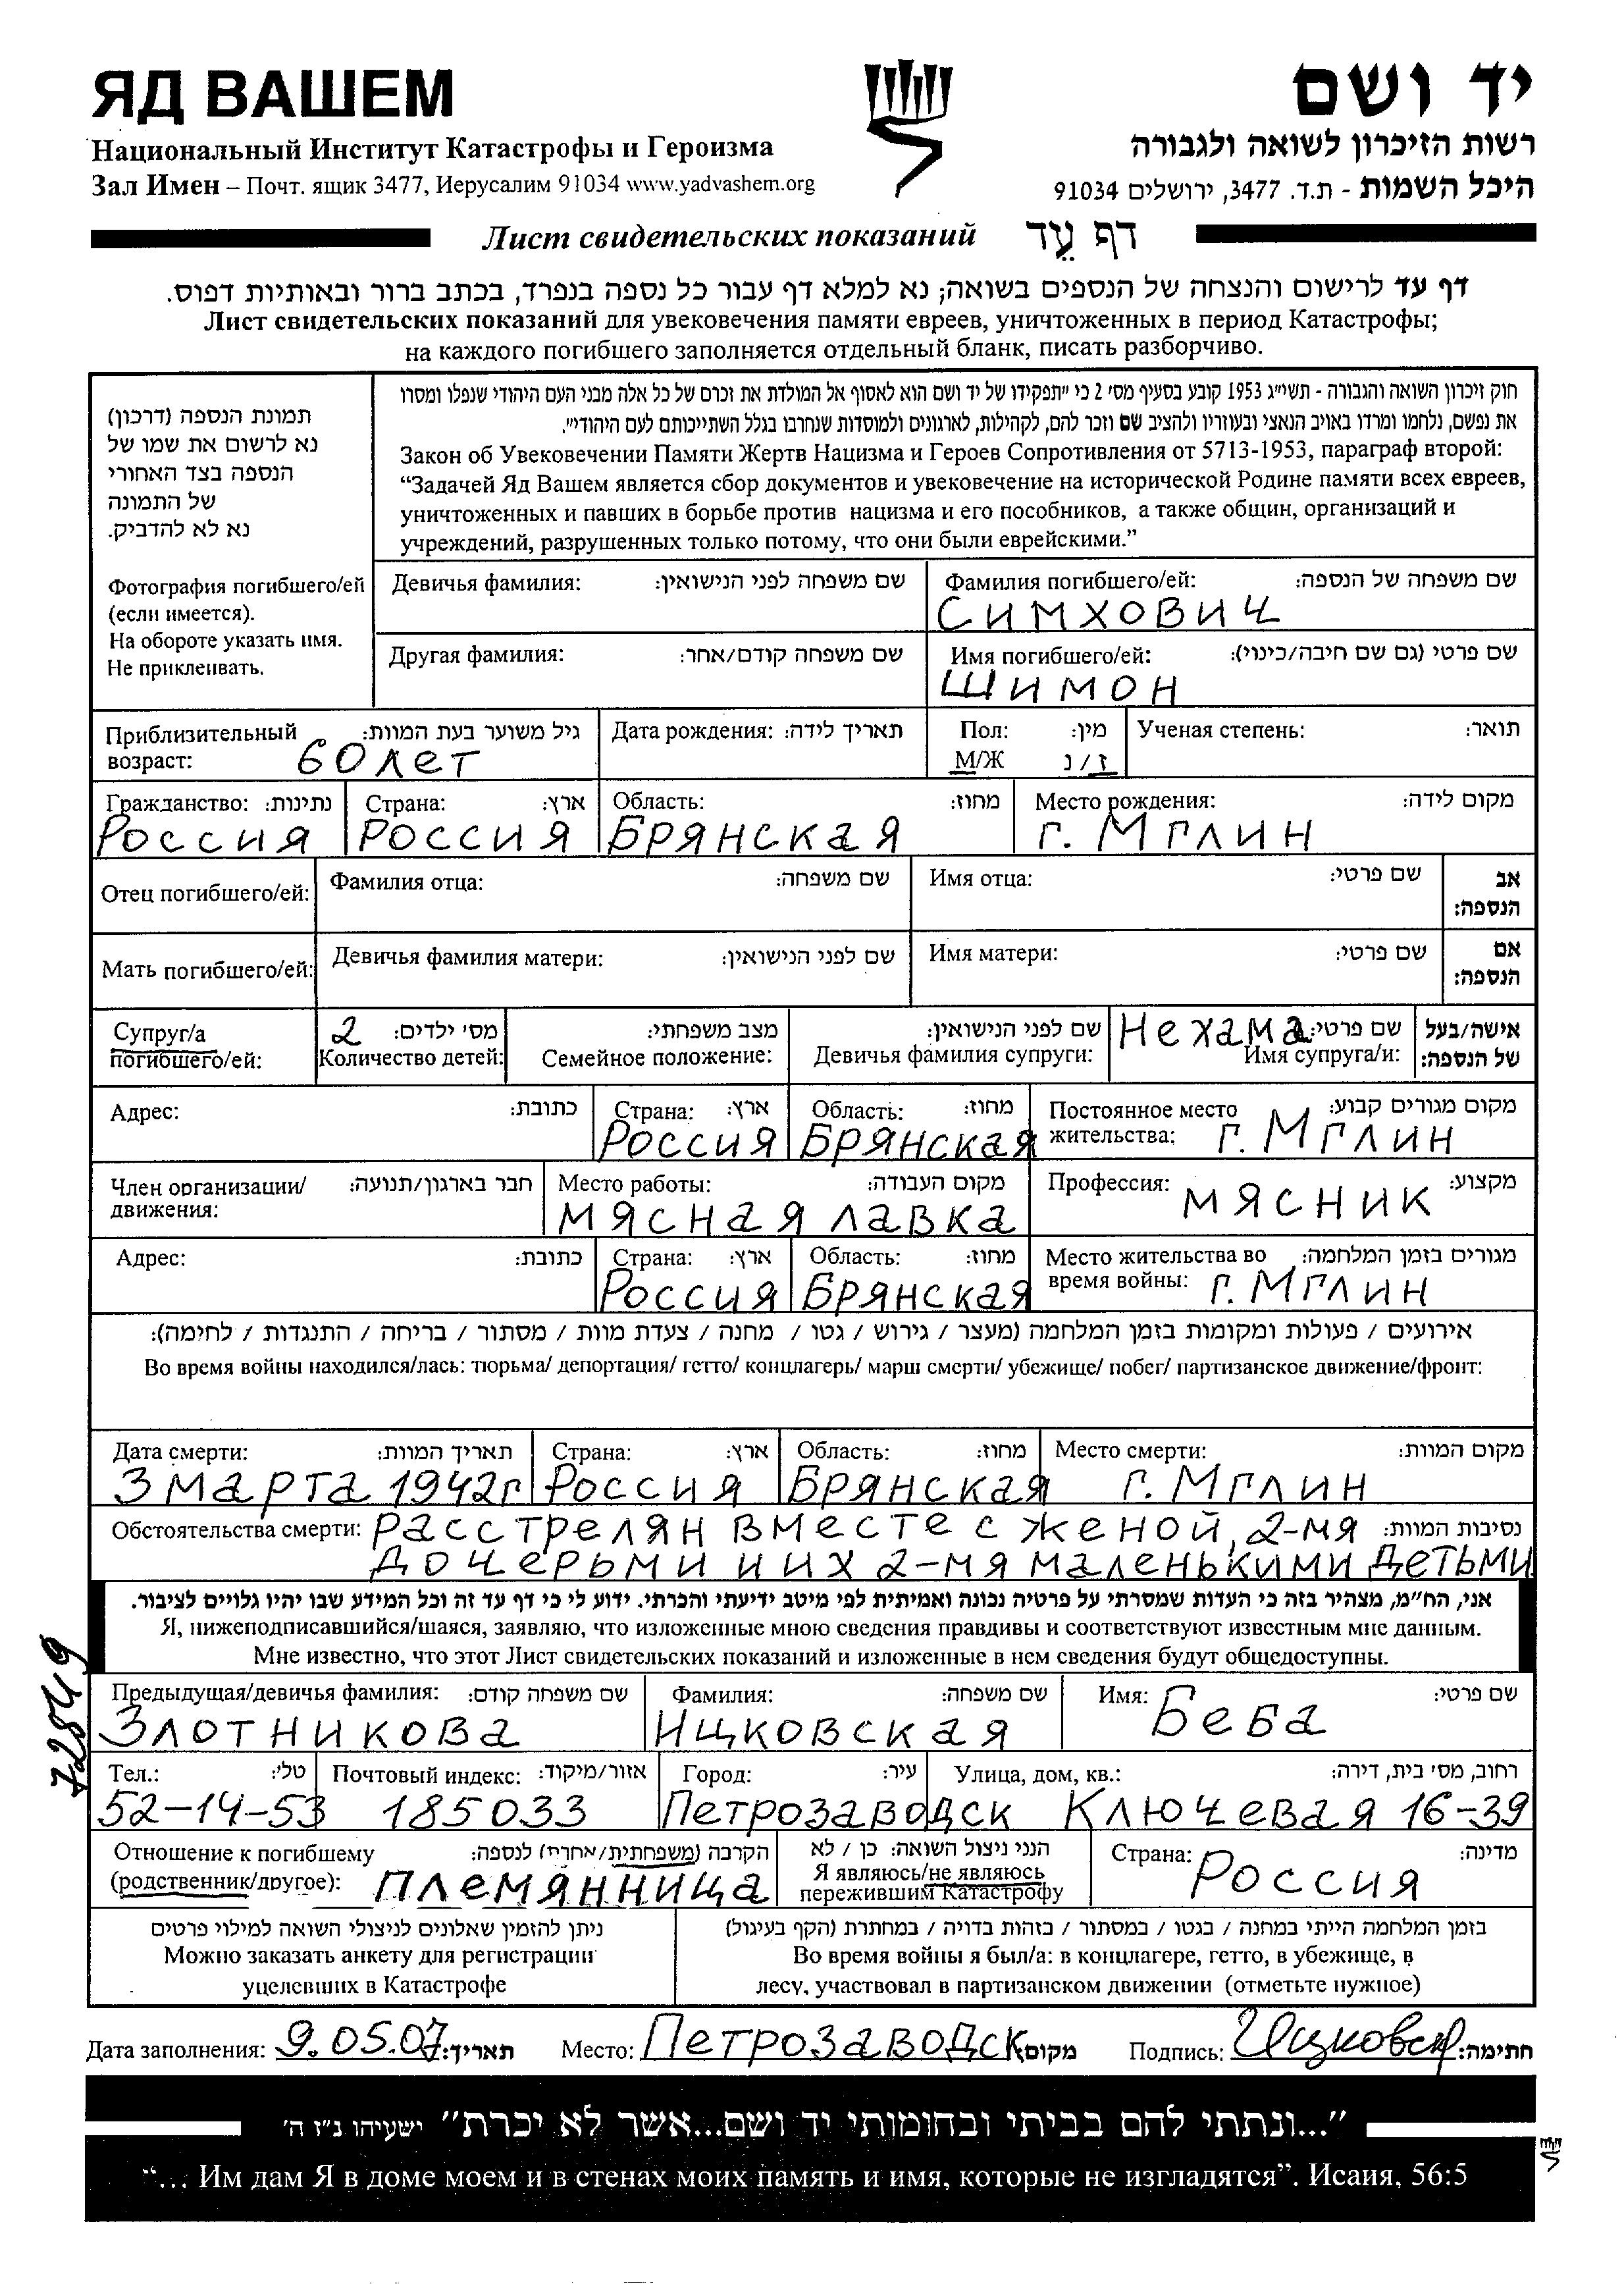 ЯД ВАШЕМ
יד ושם
Национальный Институт Катастрофы и Героизма
רשות הזיכרון לשואה ולגבורה
Зал Имен – Почт. ящик 3477, Иерусалим 91034 www.yadvashem.org
היכל השמות - ת.ד. 3477, ירושלים 91034
Лист свидетельских показаний דף עֵד
דף עד לרישום והנצחה של הנספים בשואה; נא למלא דף עבור כל נספה בנפרד, בכתב ברור ובאותיות דפוס.
Лист свидетельских показаний для увековечения памяти евреев, уничтоженных в период Катастрофы;
на каждого погибшего заполняется отдельный бланк, писать разборчиво.
תמונת הנספה (דרכון)
נא לרשום את שמו של
הנספה בצד האחורי
של התמונה
נא לא להדביק.
Фотография погибшего/ей
(если имеется).
На обороте указать имя.
Не приклеивать.
חוק זיכרון השואה והגבורה - תשי״ג 1953 קובע בסעיף מס׳ 2 כי ״תפקידו של יד ושם הוא לאסוף אל המולדת את זכרם של כל אלה מבני העם היהודי שנפלו ומסרו
את נפשם, נלחמו ומרדו באויב הנאצי ובעוזריו ולהציב שם וזכר להם, לקהילות, לארגונים ולמוסדות שנחרבו בגלל השתייכותם לעם היהודי״.
Закон об Увековечении Памяти Жертв Нацизма и Героев Сопротивления от 5713-1953, параграф второй:
“Задачей Яд Вашем является сбор документов и увековечение на исторической Родине памяти всех евреев,
уничтоженных и павших в борьбе против нацизма и его пособников, а также общин, организаций и
учреждений, разрушенных только потому, что они были еврейскими.”
Девичья фамилия: שם משפחה לפני הנישואין:
Фамилия погибшего/ей: שם משפחה של הנספה:
СИМХОВИЧ
Другая фамилия: שם משפחה קודם/אחר:
Имя погибшего/ей: שם פרטי (גם שם חיבה/כינוי):
ШИМОН
Приблизительный возраст: גיל משוער בעת המוות:
60 лет
Дата рождения: תאריך לידה:
Пол: מין:
М/Ж ז/נ
Ученая степень: תואר:
Гражданство: נתינות:
Россия
Страна: ארץ:
Россия
Область: מחוז:
Брянская
Место рождения: מקום לידה:
г. Мглин
Отец погибшего/ей: Фамилия отца: שם משפחה: Имя отца: שם פרטי: אב הנספה:
Мать погибшего/ей: Девичья фамилия матери: שם לפני הנישואין: Имя матери: שם פרטי: אם הנספה:
Супруг/а погибшего/ей:
2 מס׳ ילדים:
Количество детей:
מצב משפחתי:
Семейное положение:
שם לפני הנישואין:
Девичья фамилия супруги:
Нехама שם פרטי:
Имя супруга/и:
אישה/בעל של הנספה:
Адрес: כתובת:
Страна: ארץ:
Россия
Область: מחוז:
Брянская
Постоянное место жительства: מקום מגורים קבוע:
г. Мглин
Член организации/движения: חבר בארגון/תנועה:
Место работы: מקום העבודה:
мясная лавка
Профессия: מקצוע:
мясник
Адрес: כתובת:
Страна: ארץ:
Россия
Область: מחוז:
Брянская
Место жительства во время войны: מגורים בזמן המלחמה:
г. Мглин
אירועים / פעולות ומקומות בזמן המלחמה (מעצר / גירוש / גטו / מחנה / צעדת מוות / מסתור / בריחה / התנגדות / לחימה):
Во время войны находился/лась: тюрьма/ депортация/ гетто/ концлагерь/ марш смерти/ убежище/ побег/ партизанское движение/фронт:
Дата смерти: תאריך המוות:
3 марта 1942г
Страна: ארץ:
Россия
Область: מחוז:
Брянская
Место смерти: מקום המוות:
г. Мглин
Обстоятельства смерти: расстрелян вместе с женой, 2-мя נסיבות המוות:
дочерьми и их 2-мя маленькими детьми
אני, הח״מ, מצהיר בזה כי העדות שמסרתי על פרטיה נכונה ואמיתית לפי מיטב ידיעתי והכרתי. ידוע לי כי דף עד זה וכל המידע שבו יהיו גלויים לציבור.
Я, нижеподписавшийся/шаяся, заявляю, что изложенные мною сведения правдивы и соответствуют известным мне данным.
Мне известно, что этот Лист свидетельских показаний и изложенные в нем сведения будут общедоступны.
Предыдущая/девичья фамилия: שם משפחה קודם:
Злотникова
Фамилия: שם משפחה:
Ицковская
Имя: שם פרטי:
Беба
Тел.: טל׳:
52-14-53
Почтовый индекс: אזור/מיקוד:
185033
Город: עיר:
Петрозаводск
Улица, дом, кв.: רחוב, מס׳ בית, דירה:
Ключевая 16-39
Отношение к погибшему הקרבה (משפחתית/אחרת) לנספה:
(родственник/другое): племянница
הנני ניצול השואה: כן / לא
Я являюсь/не являюсь
пережившим Катастрофу
Страна: מדינה:
Россия
ניתן להזמין שאלונים לניצולי השואה למילוי פרטים
Можно заказать анкету для регистрации
уцелевших в Катастрофе
בזמן המלחמה הייתי במחנה / בגטו / במסתור / בזהות בדויה / במחתרת (הקף בעיגול)
Во время войны я был/а: в концлагере, гетто, в убежище, в
лесу, участвовал в партизанском движении (отметьте нужное)
Дата заполнения: 9.05.07 תאריך: Место: Петрозаводск מקום: Подпись: Ицковск חתימה:
״...ונתתי להם בביתי ובחומותי יד ושם...אשר לא יכרת״ ישעיהו נ״ו ה׳
“... Им дам Я в доме моем и в стенах моих память и имя, которые не изгладятся”. Исаия, 56:5